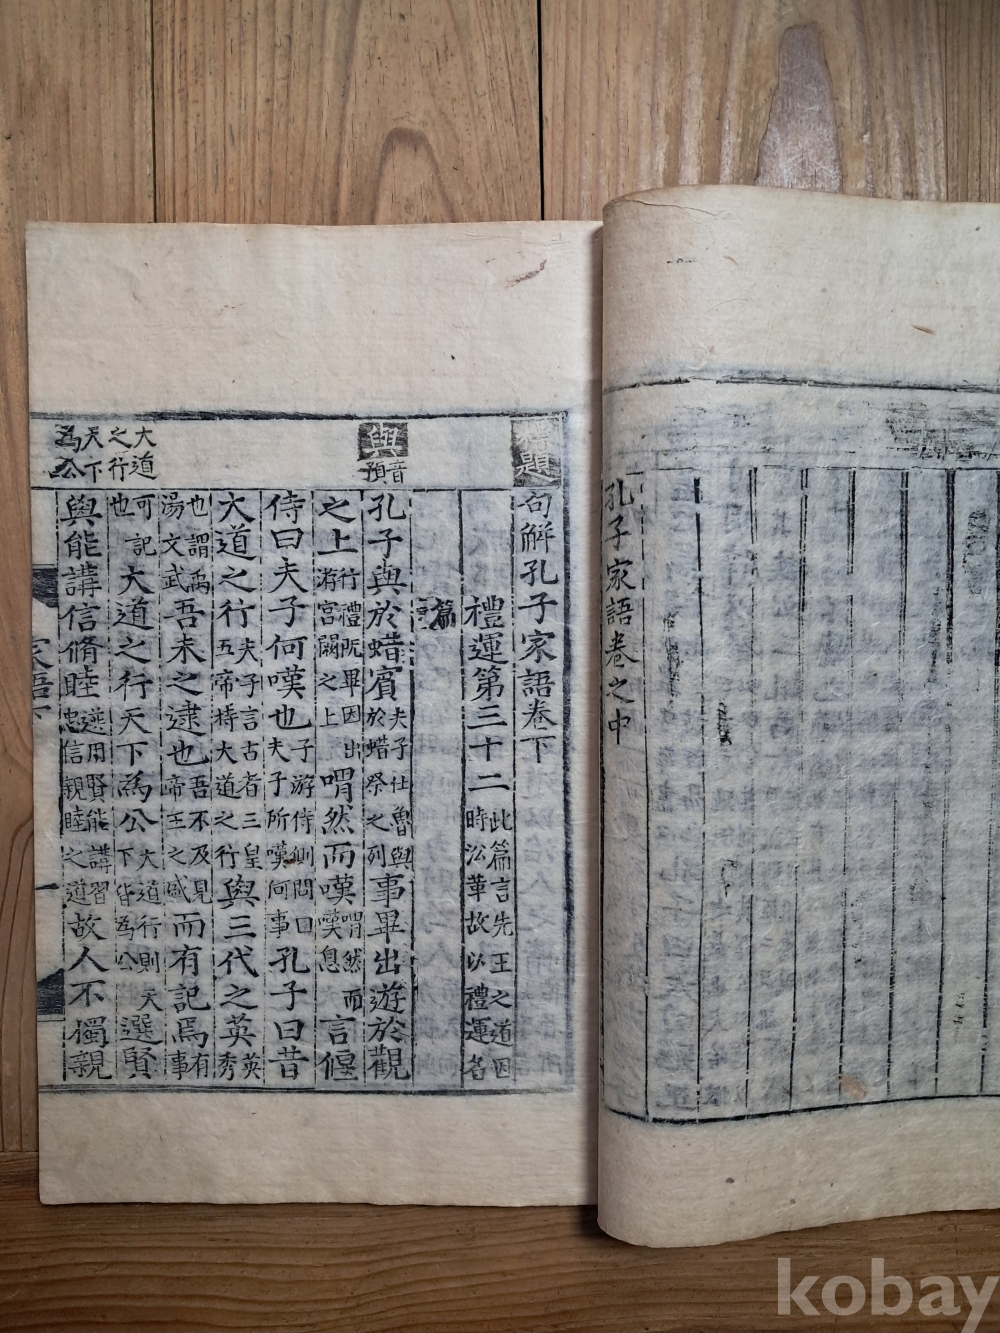 孔子家語卷之中
標題
句解孔子家語卷下
禮運第三十二 此篇言先王之道因
時沿革故以禮運名
篇
與
音預
孔子與於蜡賓 夫子仕魯與
於蜡祭之列 事畢出遊於觀
之上 行禮既畢因出
游宮闕之上 喟然而嘆 喟然而
嘆息 言偃
侍曰夫子何嘆也 子游侍側問曰
夫子所嘆何事 孔子曰昔
大道之行 夫子言古者三皇
五帝持大道之行 與三代之英 英
秀
也謂禹
湯文武 吾未之逮也 吾不及見
帝王之盛 而有記焉 有事
可記
也 大道之行天下為公 大道行則天
下皆為公 選賢
與能講信脩睦 選用賢能講習
忠信親睦之道 故人不獨親
大道
之行
天下
為公
家語下
一
kobay